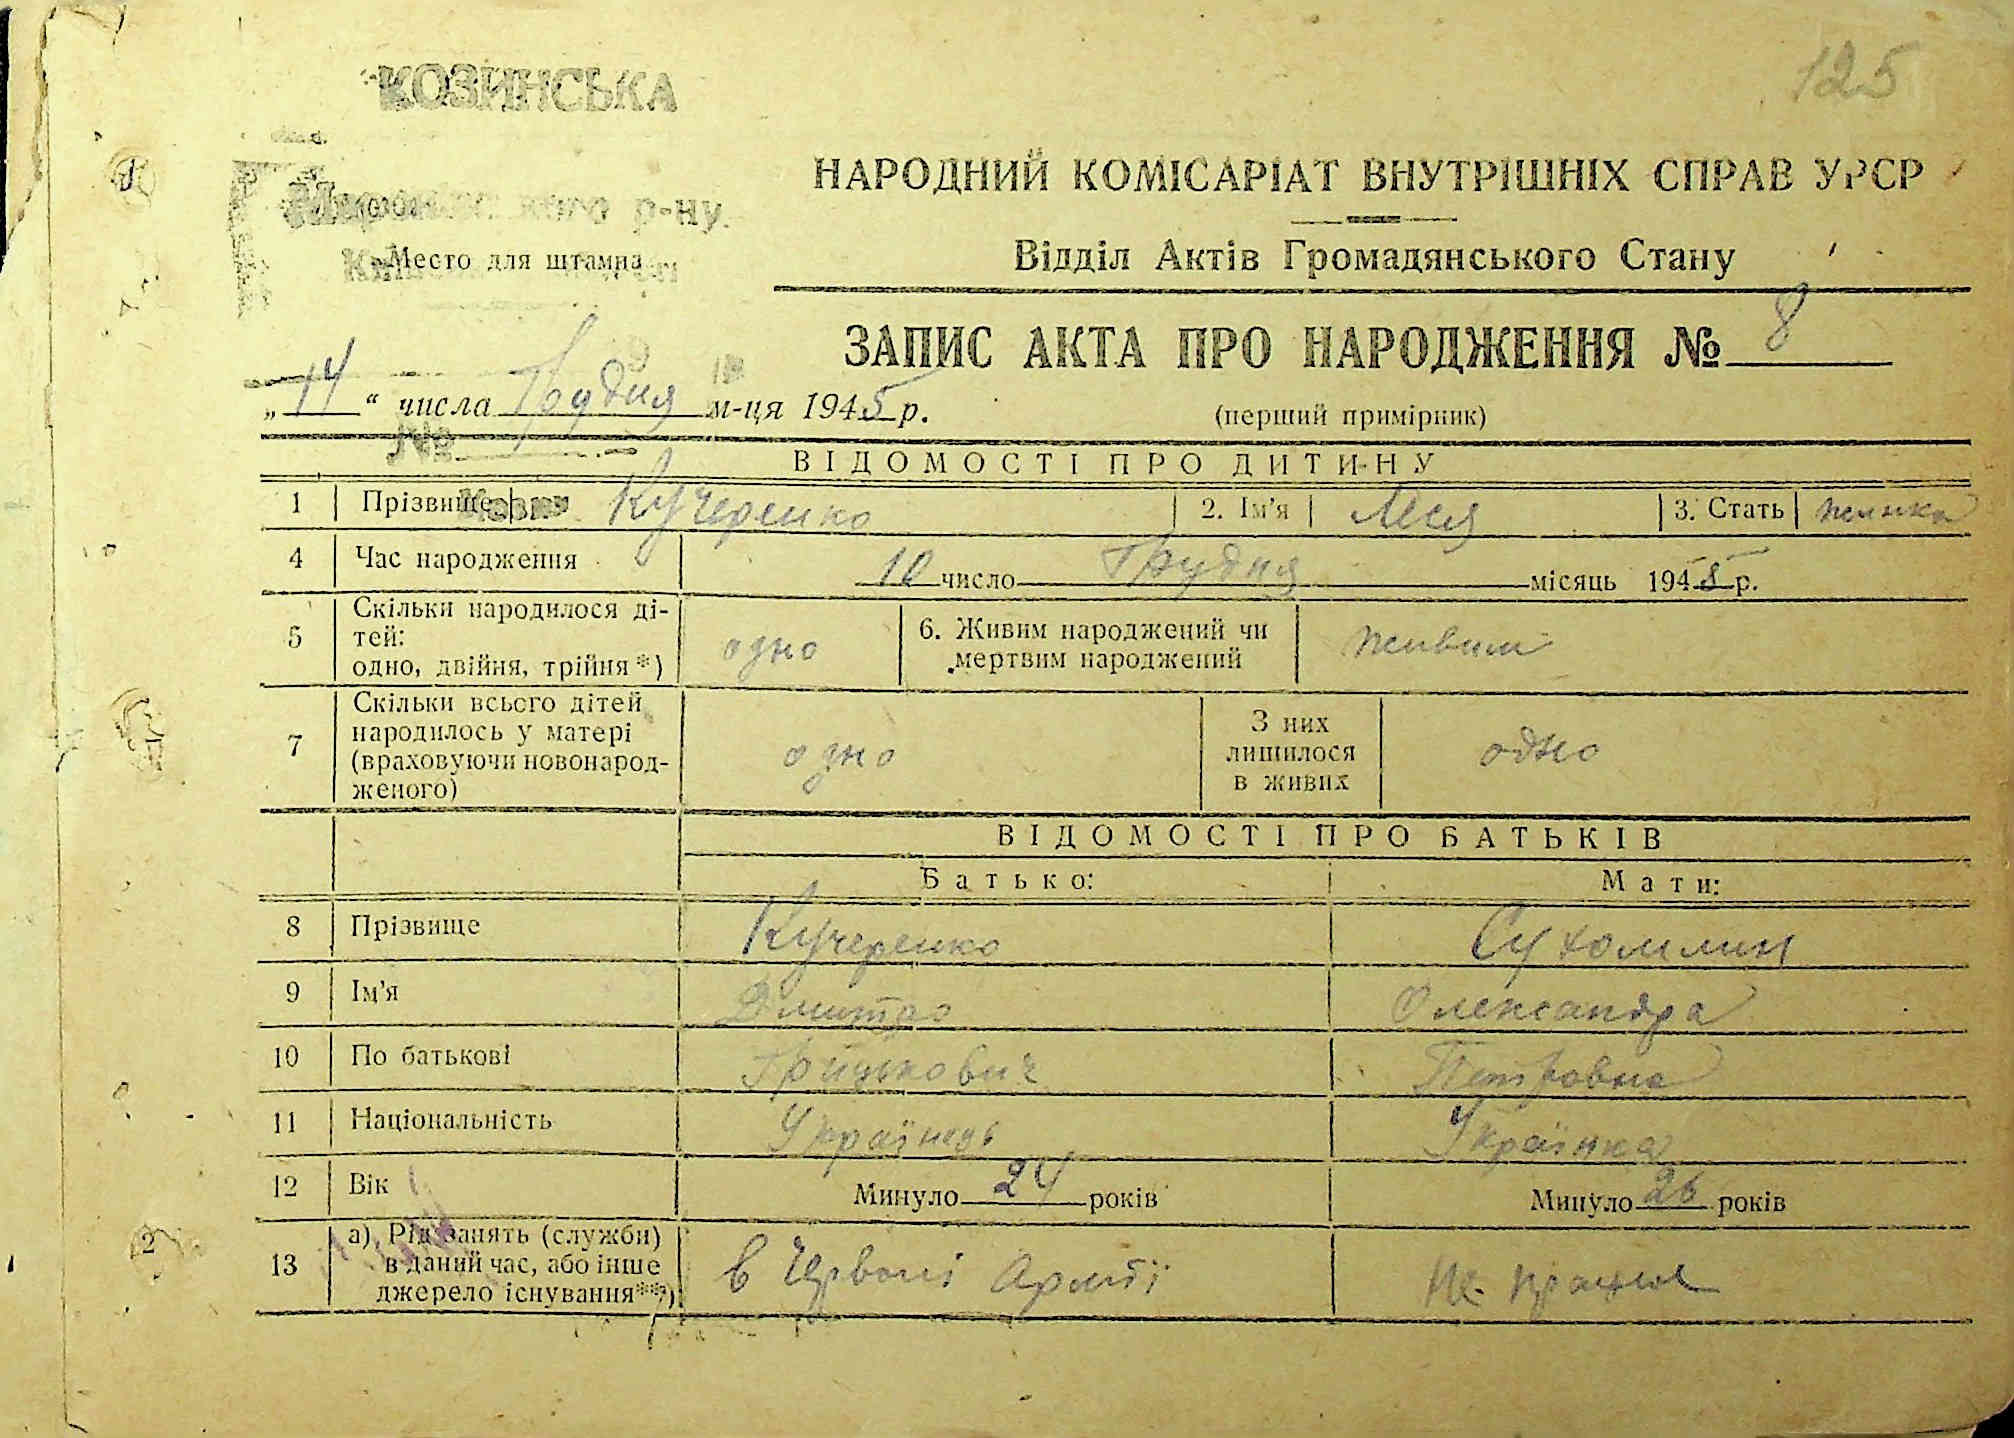 125
КОЗИНСЬКА
р-ну.
Место для штампа
НАРОДНИЙ КОМІСАРІАТ ВНУТРІШНІХ СПРАВ УРСР
Відділ Актів Громадянського Стану
ЗАПИС АКТА ПРО НАРОДЖЕННЯ № 8
„14“ числа Грудня м-ця 1945 р.
(перший примірник)
№
ВІДОМОСТІ ПРО ДИТИНУ
1 Прізвище Кучеренко 2. Ім'я Леся 3. Стать жінка
4 Час народження 10 число Грудня місяць 1945 р.
5 Скільки народилося ді-
тей:
одно, двійня, трійня*) одно 6. Живим народжений чи
мертвим народжений живим
7 Скільки всього дітей
народилось у матері
(враховуючи новонарод-
женого) одно З них
лишилося
в живих одно
ВІДОМОСТІ ПРО БАТЬКІВ
Батько: Мати:
8 Прізвище Кучеренко Сухомлин
9 Ім'я Дмитро Олександра
10 По батькові Грицькович Петровна
11 Національність Українець Українка
12 Вік Минуло 24 років Минуло 26 років
13 а) Рід занять (служби)
в даний час, або інше
джерело існування**) в Червоні Армії не працює
2